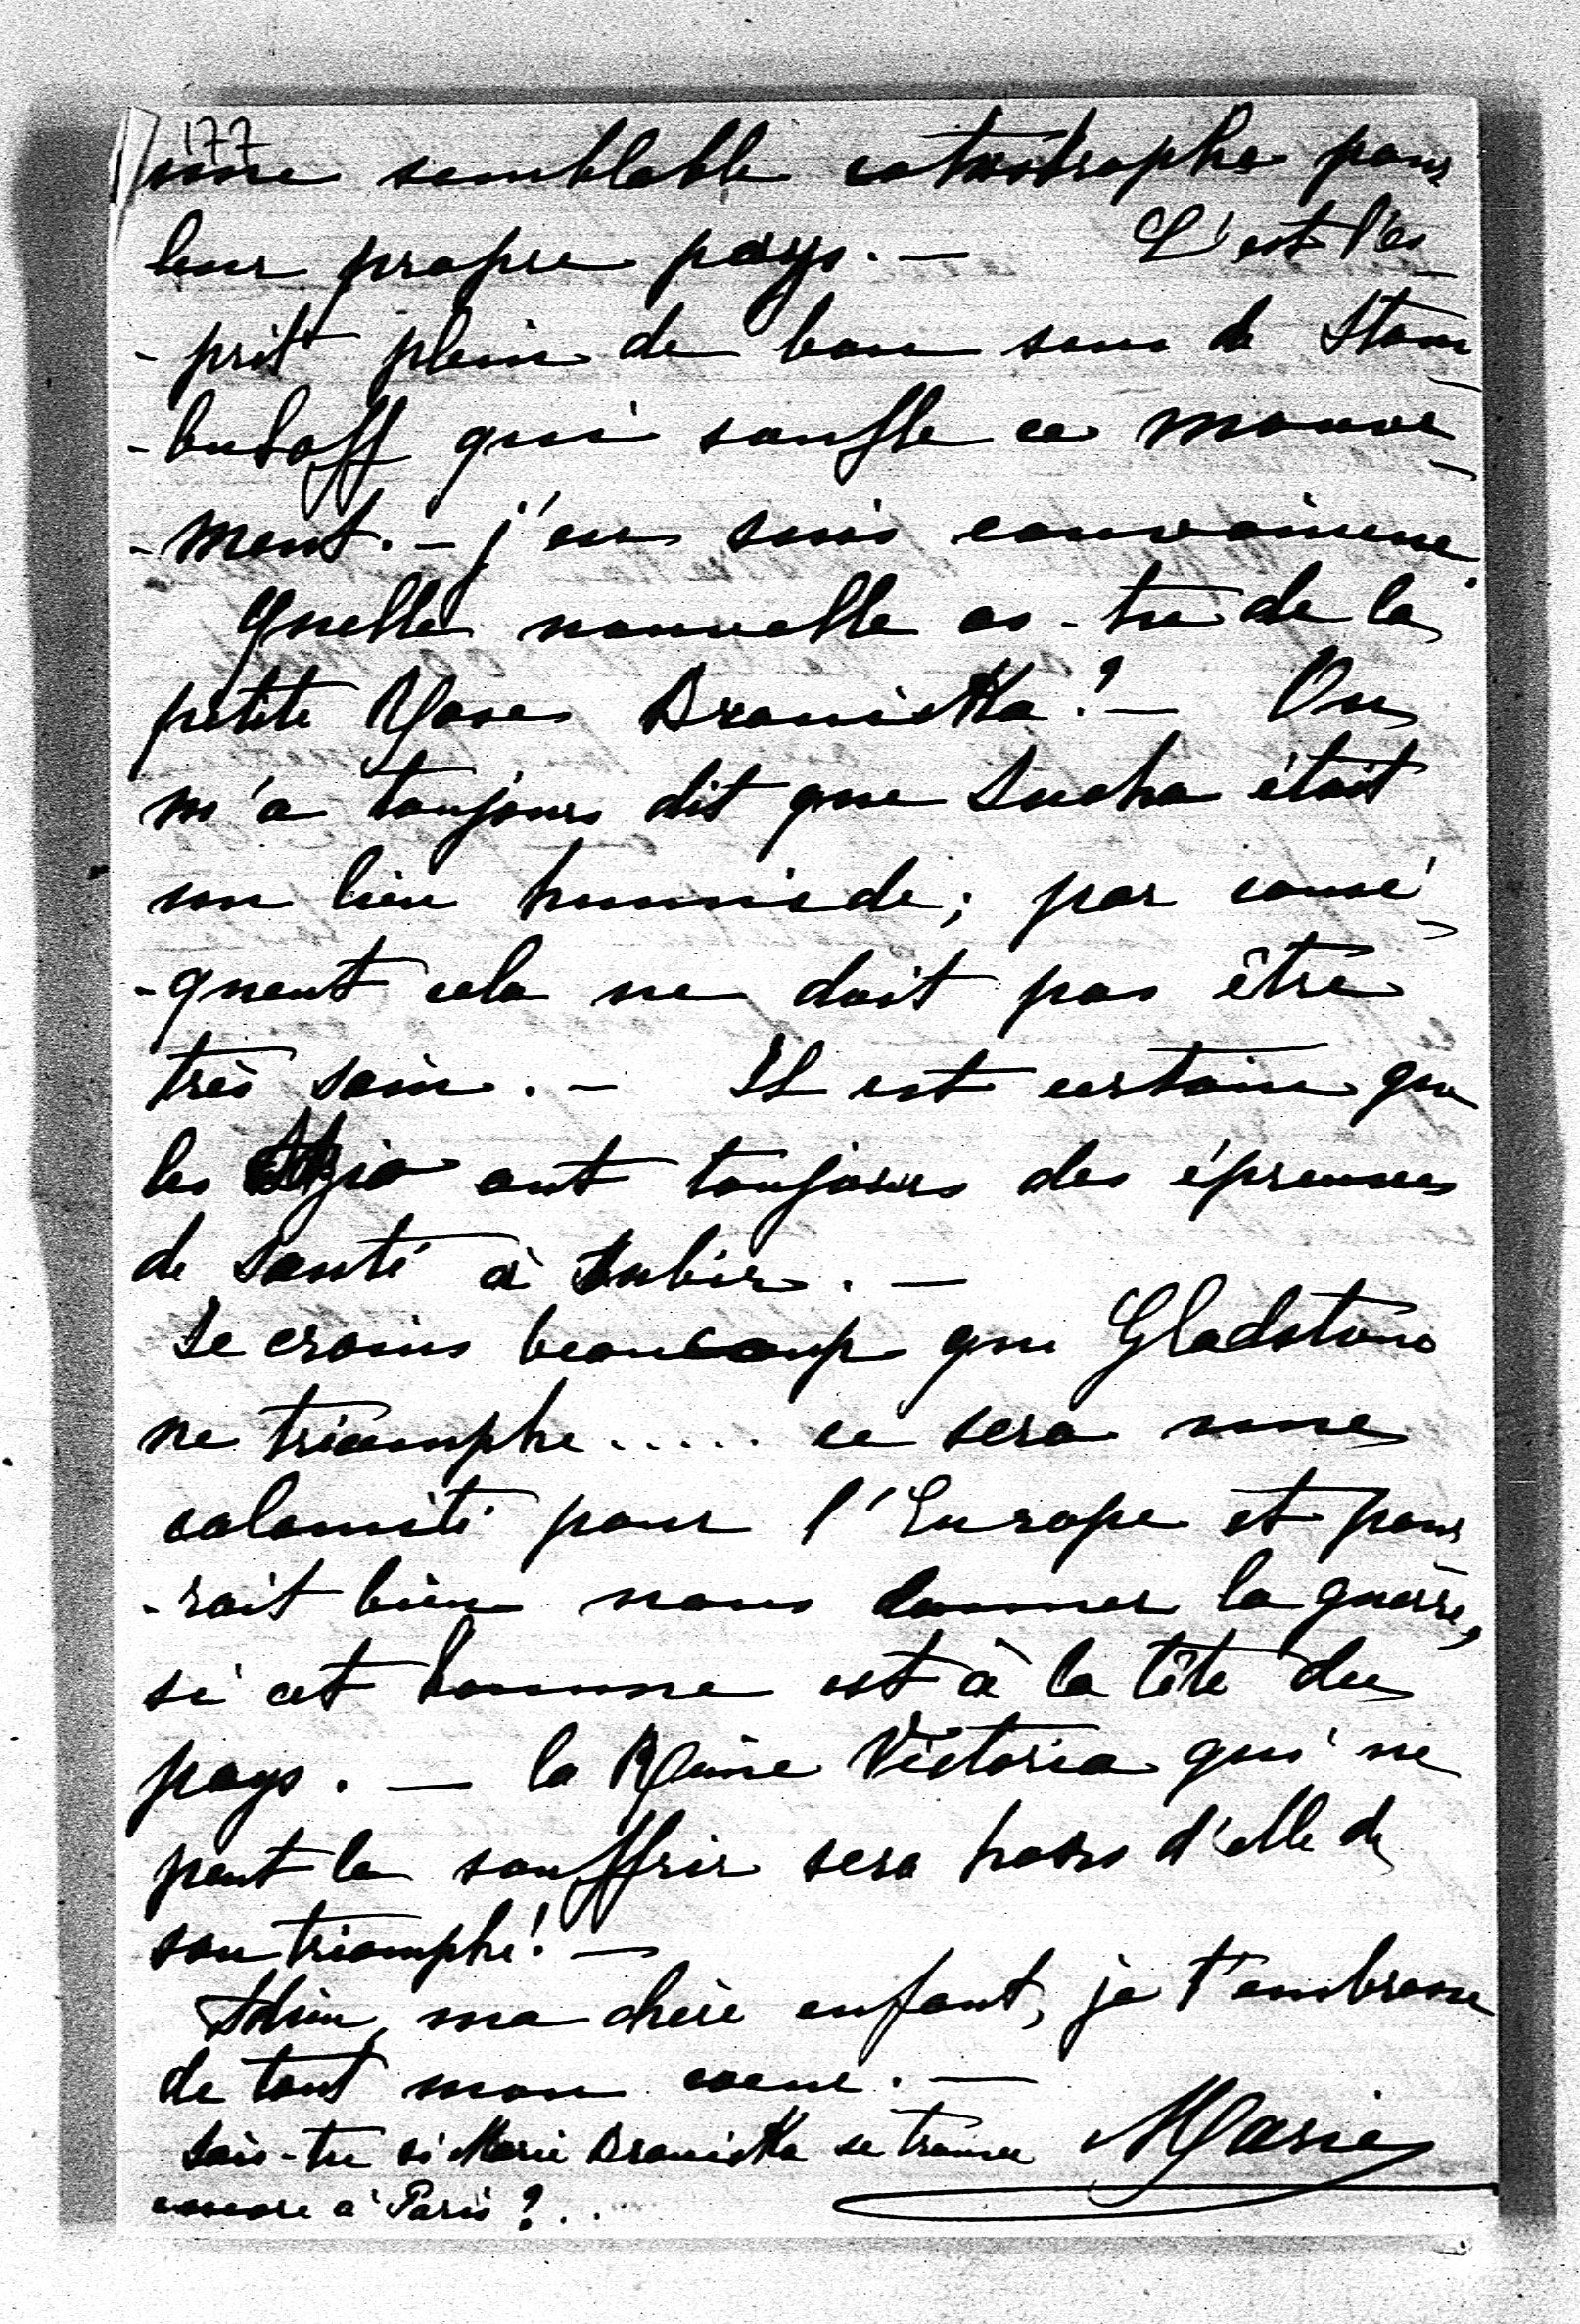 177
une semblable catastrophe pour
leur propre pays. — C'est l'es-
-prit plein de bon sens de Stam-
-buloff qui souffle ce mouve-
-ment. — j'en suis convaincue.
Quelle nouvelle as-tu de la
petite Rose Branicka? — On
m'a toujours dit que Sucha était
un lieu humide; par consé-
-quent cela ne doit pas être
très sain. — Il est certain que
les ont toujours des épreuves
de santé à subir. —
Je crains beaucoup que Gladstone
ne triomphe..... ce sera une
calamité pour l'Europe et pour-
-rait bien nous donner la guerre,
si cet homme est à la tête du
pays. — la Reine Victoria qui ne
peut le souffrir sera hors d'elle de
son triomphe! —
Adieu, ma chère enfant, je t'embrasse
de tout mon coeur. —
Marie
Sais-tu si Marie Branicka se trouve
encore à Paris?..